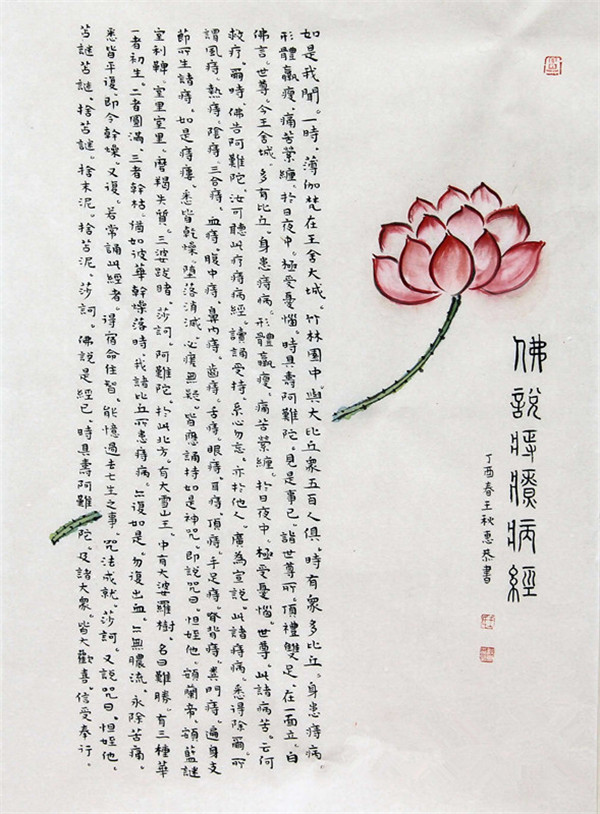 佛說痔病經
丁酉春王秋惠恭書
如是我聞。一時、薄伽梵在王舍大城。竹林園中。與大比丘眾五百人俱。時有眾多比丘。身患痔病。
形體羸瘦。痛苦縈纏。於日夜中。極受憂惱。時具壽阿難陀。見是事已。詣世尊所。頂禮雙足。在一面立。白
佛言。世尊。今王舍城。多有比丘。身患痔病。形體羸瘦。痛苦縈纏。於日夜中。極受憂惱。世尊。此諸病苦。云何
救疗。爾時。佛告阿難陀。汝可聽此疗痔病經。讀誦受持。系心勿忘。亦於他人。廣為宣說。此諸痔病。悉得除爾。所
謂風痔。熱痔。陰痔。三合痔。血痔。腹中痔。鼻內痔。齒痔。舌痔。眼痔。耳痔。頂痔。手足痔。脊背痔。糞門痔。遍身支
節所生諸痔。如是痔瘻。悉皆乾燥。墮落消滅。必瘥無疑。皆應誦持如是神咒。即說咒曰。怛姪他。頞蘭帝。頞藍謎
室利鞞。室里室里。磨羯失質。三婆跋睹。莎訶。阿難陀。於此北方。有大雪山王。中有大娑羅樹。名曰難勝。有三種華
一者初生。二者圓滿。三者幹枯。猶如彼華幹燥落時。我諸比丘所患痔病。亦復如是。勿復出血。亦無膿流。永除苦痛。
悉皆平復。即令幹燥。又復。若常誦此經者。得宿命住智。能憶過去七生之事。咒法成就。莎訶。又說咒曰。怛姪他。
苫謎苫謎。捨苫謎。捨末泥。捨苫泥。莎訶。佛說是經已。時具壽阿難陀。及諸大眾。皆大歡喜。信受奉行。